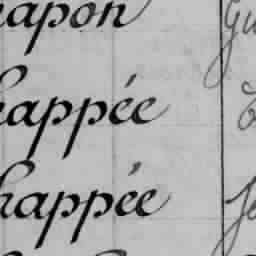 apon
happée
happée